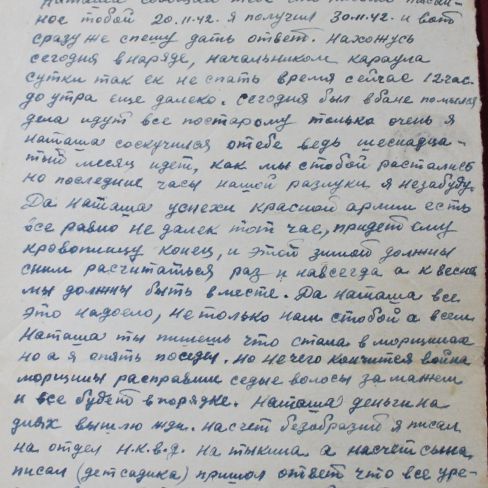 Наташа сообщаю тебе что письмо писан-
ное тобой 20.11-42. я получил 30.11.42. и вот
сразу же спешу дать ответ. нахожусь
сегодня в наряде, начальником караула
сутки так ек не спать время сейчас 12 час.
до утра еще далеко. сегодня был в бане помылся
дела идут все постарому только очень я
наташа соскучился отебе ведь шеснадца-
тый месяц идет, как мы стобой расталиь
но последние часы нашой разлуки я незабуду.
Да наташа успехи красной армии есть
все равно не далек тот час, придет ему
кровопийцу конец, и этой зимой должны
сним расчитаться раз и навсегда а к весне
мы должны быть вместе. Да наташа все
это надоело, не только нам стобой а всем.
наташа ты пишешь что стала в морщинах
но а я опять поседы. но нечего кончится война
морщины расправим седые волосы замажем
и все будет в порядке. наташа деньги на
днях вышлю жди. насчет безобразий я писал
на отдел н.к.в.д. на а насчет сына
писал (детсадика) пришол ответ что все уре-